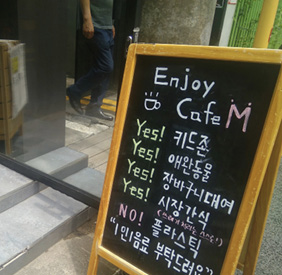 Enjoy
Cafe M
Yes! 키드존
Yes! 애완동물
Yes! 장바구니대여
Yes! 시장간식
NO! 플라스틱
"1인1음료 부탁드려요"